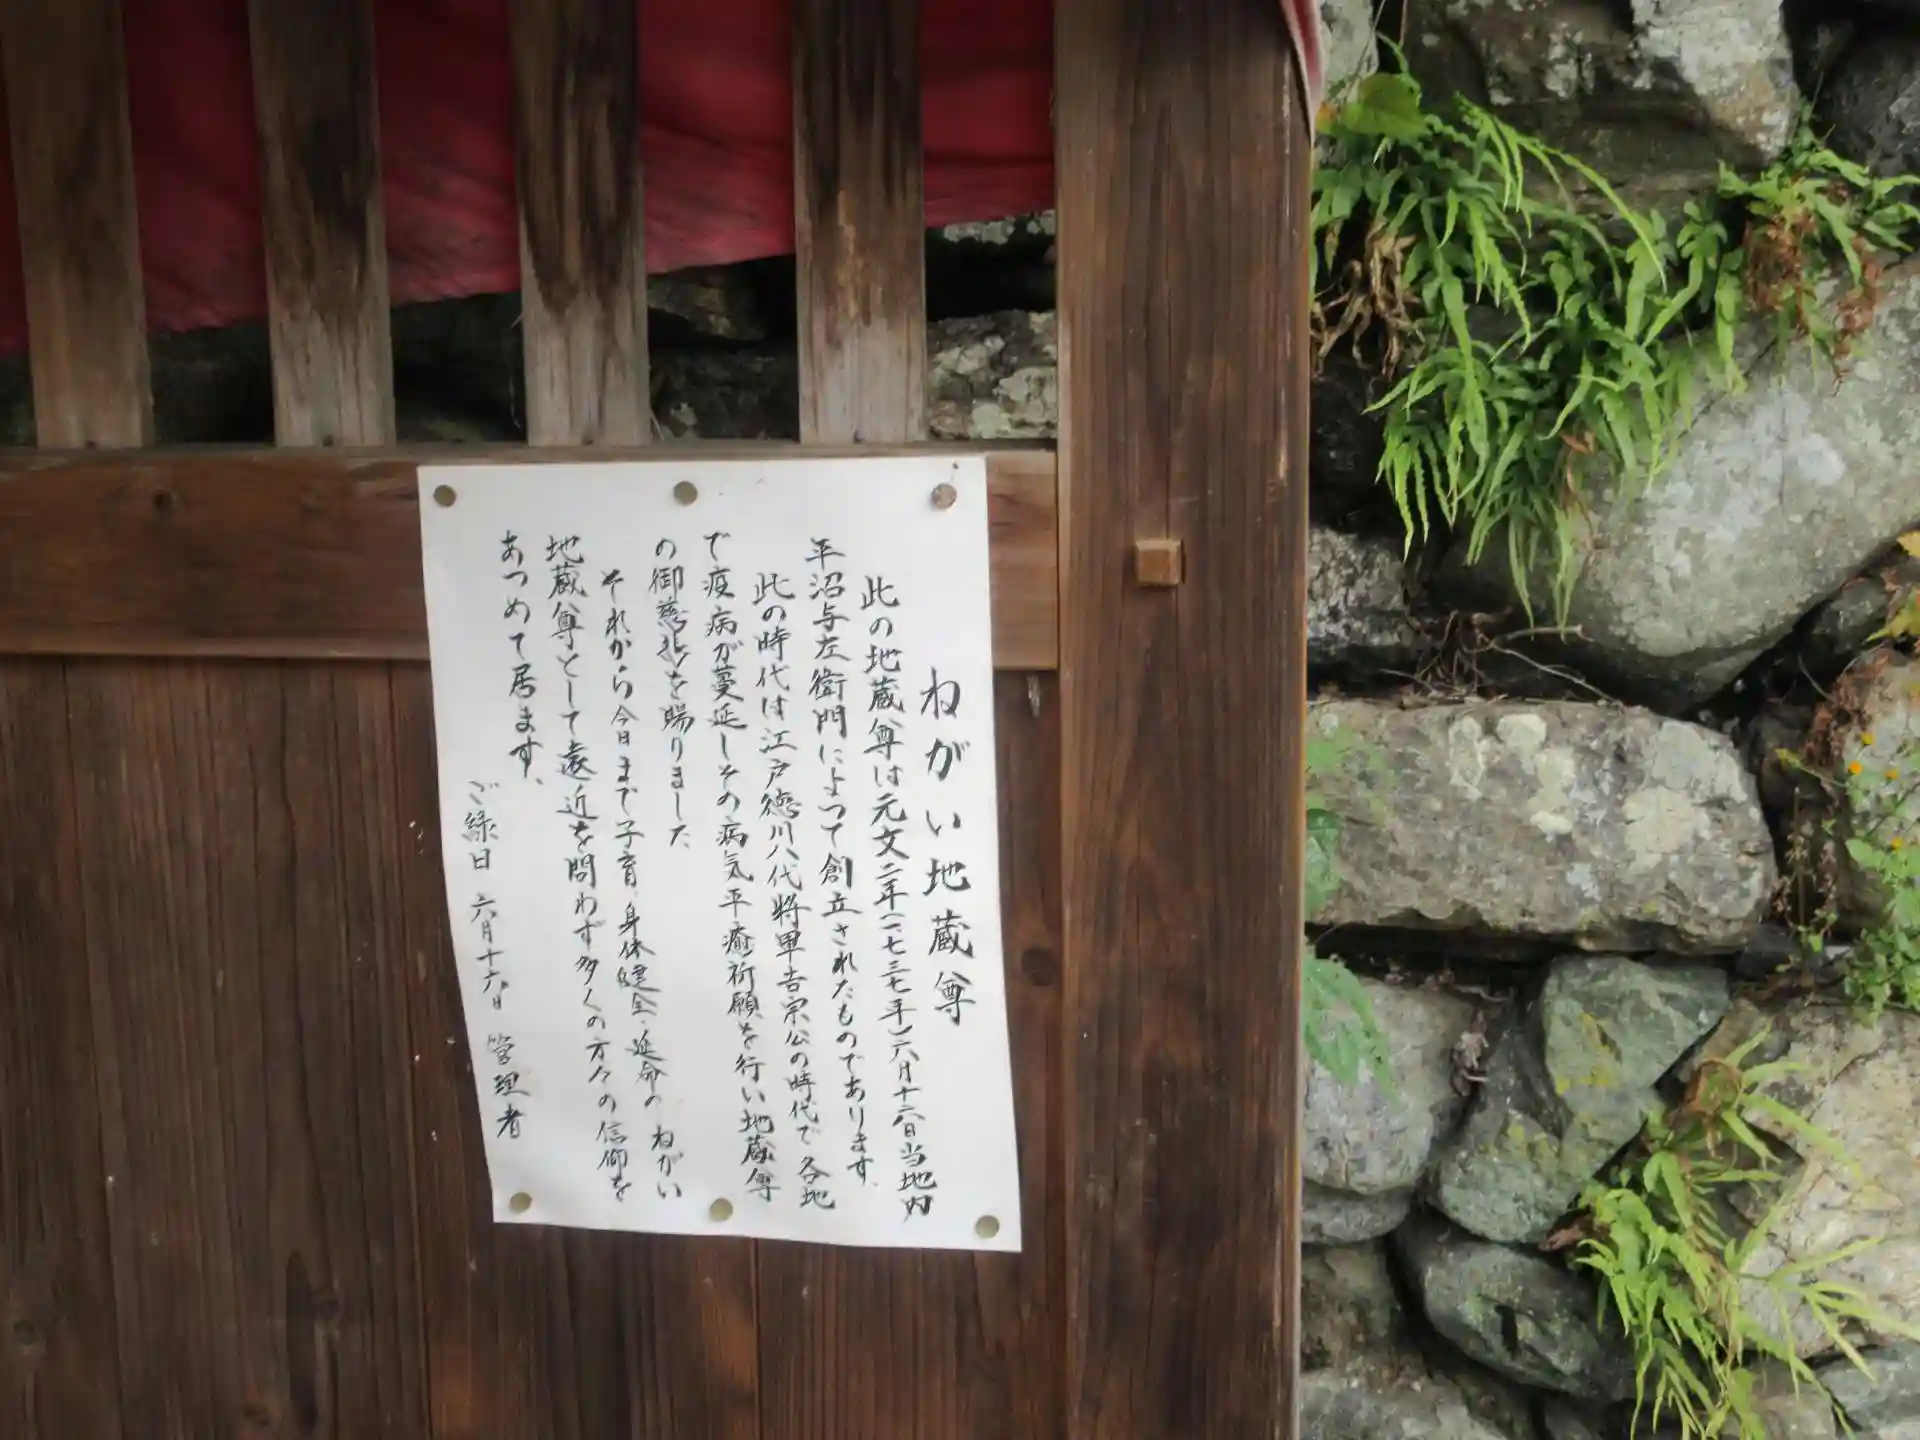 ねがい地蔵尊
此の地蔵尊は元文二年(一七三七年)六月十六日当地内
平沼与左衛門によつて創立されたものであります。
此の時代は江戸徳川八代将軍吉宗公の時代で各地
で疫病が蔓延しその病気平癒祈願を行い地蔵尊
の御慈悲を賜りました
それから今日まで子育、身体健全、延命の ねがい
地蔵尊として遠近を問わず多くの方々の信仰を
あつめて居ます。
ご縁日 六月十六日 管理者